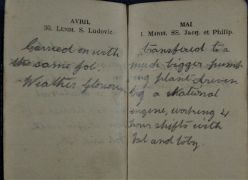 AVRIL
30. LUNDI. S. Ludovic.
Carried on with
the same job
Weather glorious
MAI
1. MARDI. SS. Jacq. et Philip.
transferred to a
much bigger pumping
plant driven
by a National
engine, working 4
hour shifts with
and